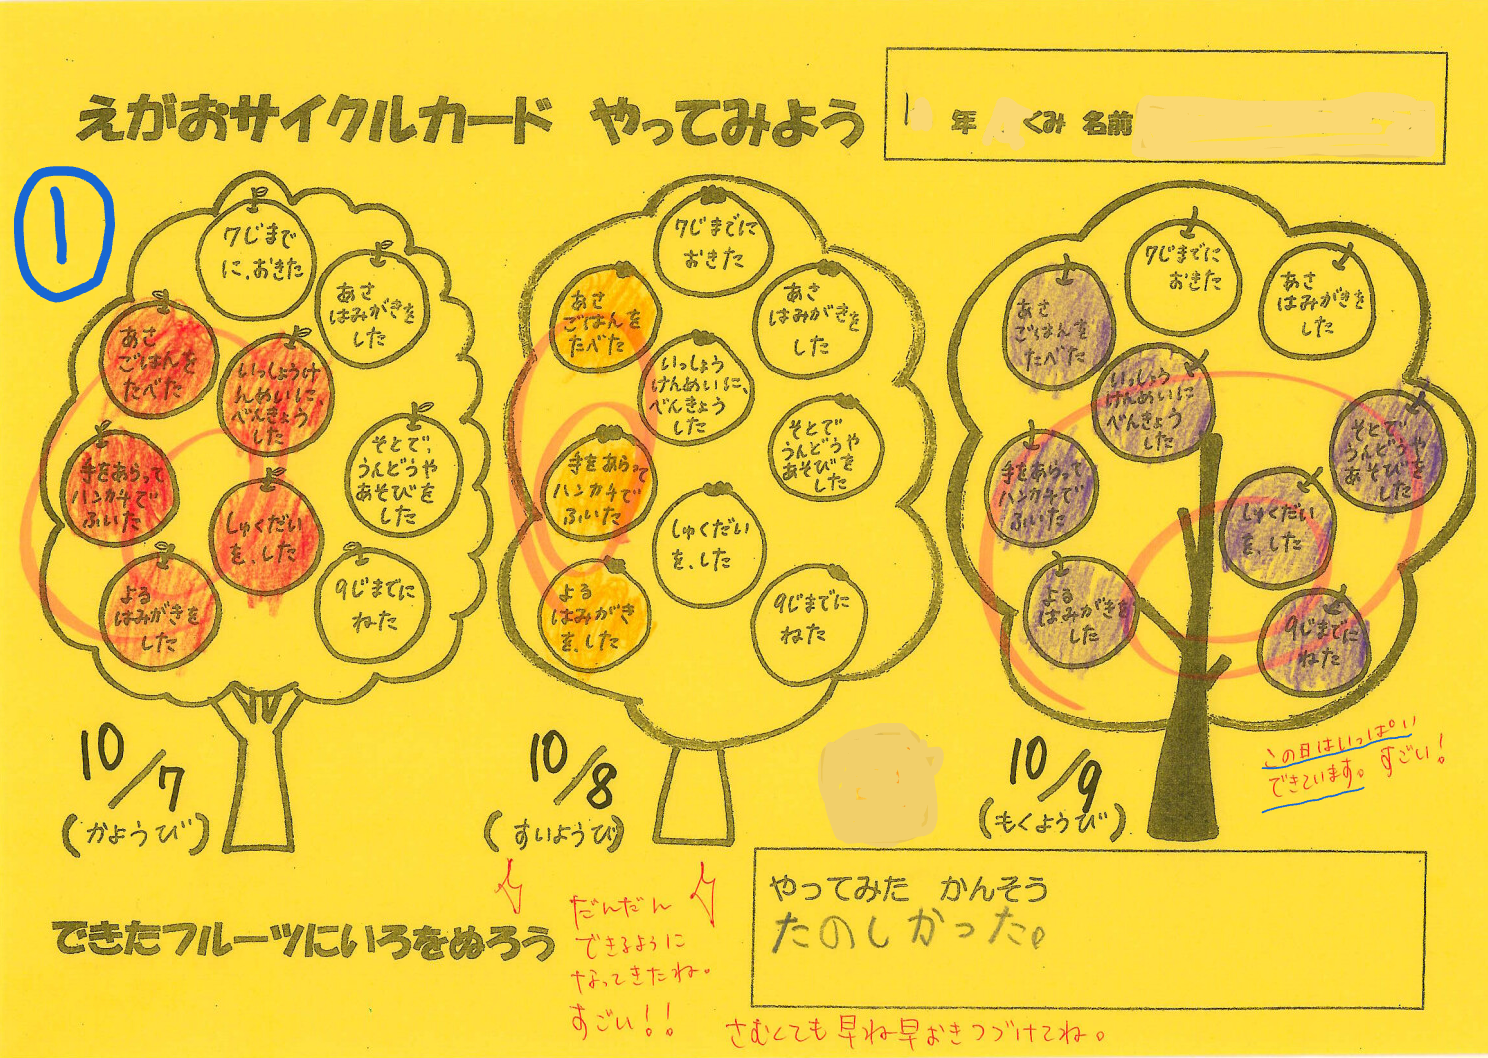 えがおサイクルカード やってみよう
1 年 くみ 名前
1
7じまで
に、おきた
あさ
はみがきを
した
あさ
ごはんを
たべた
いっしょうけ
んめいに、
べんきょう
した
手をあらって
ハンカチで
ふいた
そとで、
うんどうや
あそびを
した
しゅくだい
を、した
よる
はみがきを
した
9じまでに
ねた
10/7
(かようび)
7じまでに
おきた
あさ
ごはんを
たべた
あさ
はみがきを
した
いっしょう
けんめいに、
べんきょう
した
手をあらって
ハンカチで
ふいた
そとで
うんどうや
あそびを
した
しゅくだい
を、した
よる
はみがき
を、した
9じまでに
ねた
10/8
(すいようび)
7じまでに
おきた
あさ
ごはんを
たべた
あさ
はみがきを
した
いっしょう
けんめいに
べんきょう
した
手をあらって
ハンカチで
ふいた
そとで
うんどうや
あそびを
した
しゅくだい
を、した
よる
はみがきを
した
9じまでに
ねた
10/9
(もくようび)
この日はいっぱい
できています。すごい!
できたフルーツにいろをぬろう
だんだん
できるように
なってきたね。
すごい!!
やってみた かんそう
たのしかった。
さむくても早ね早おきつづけてね。